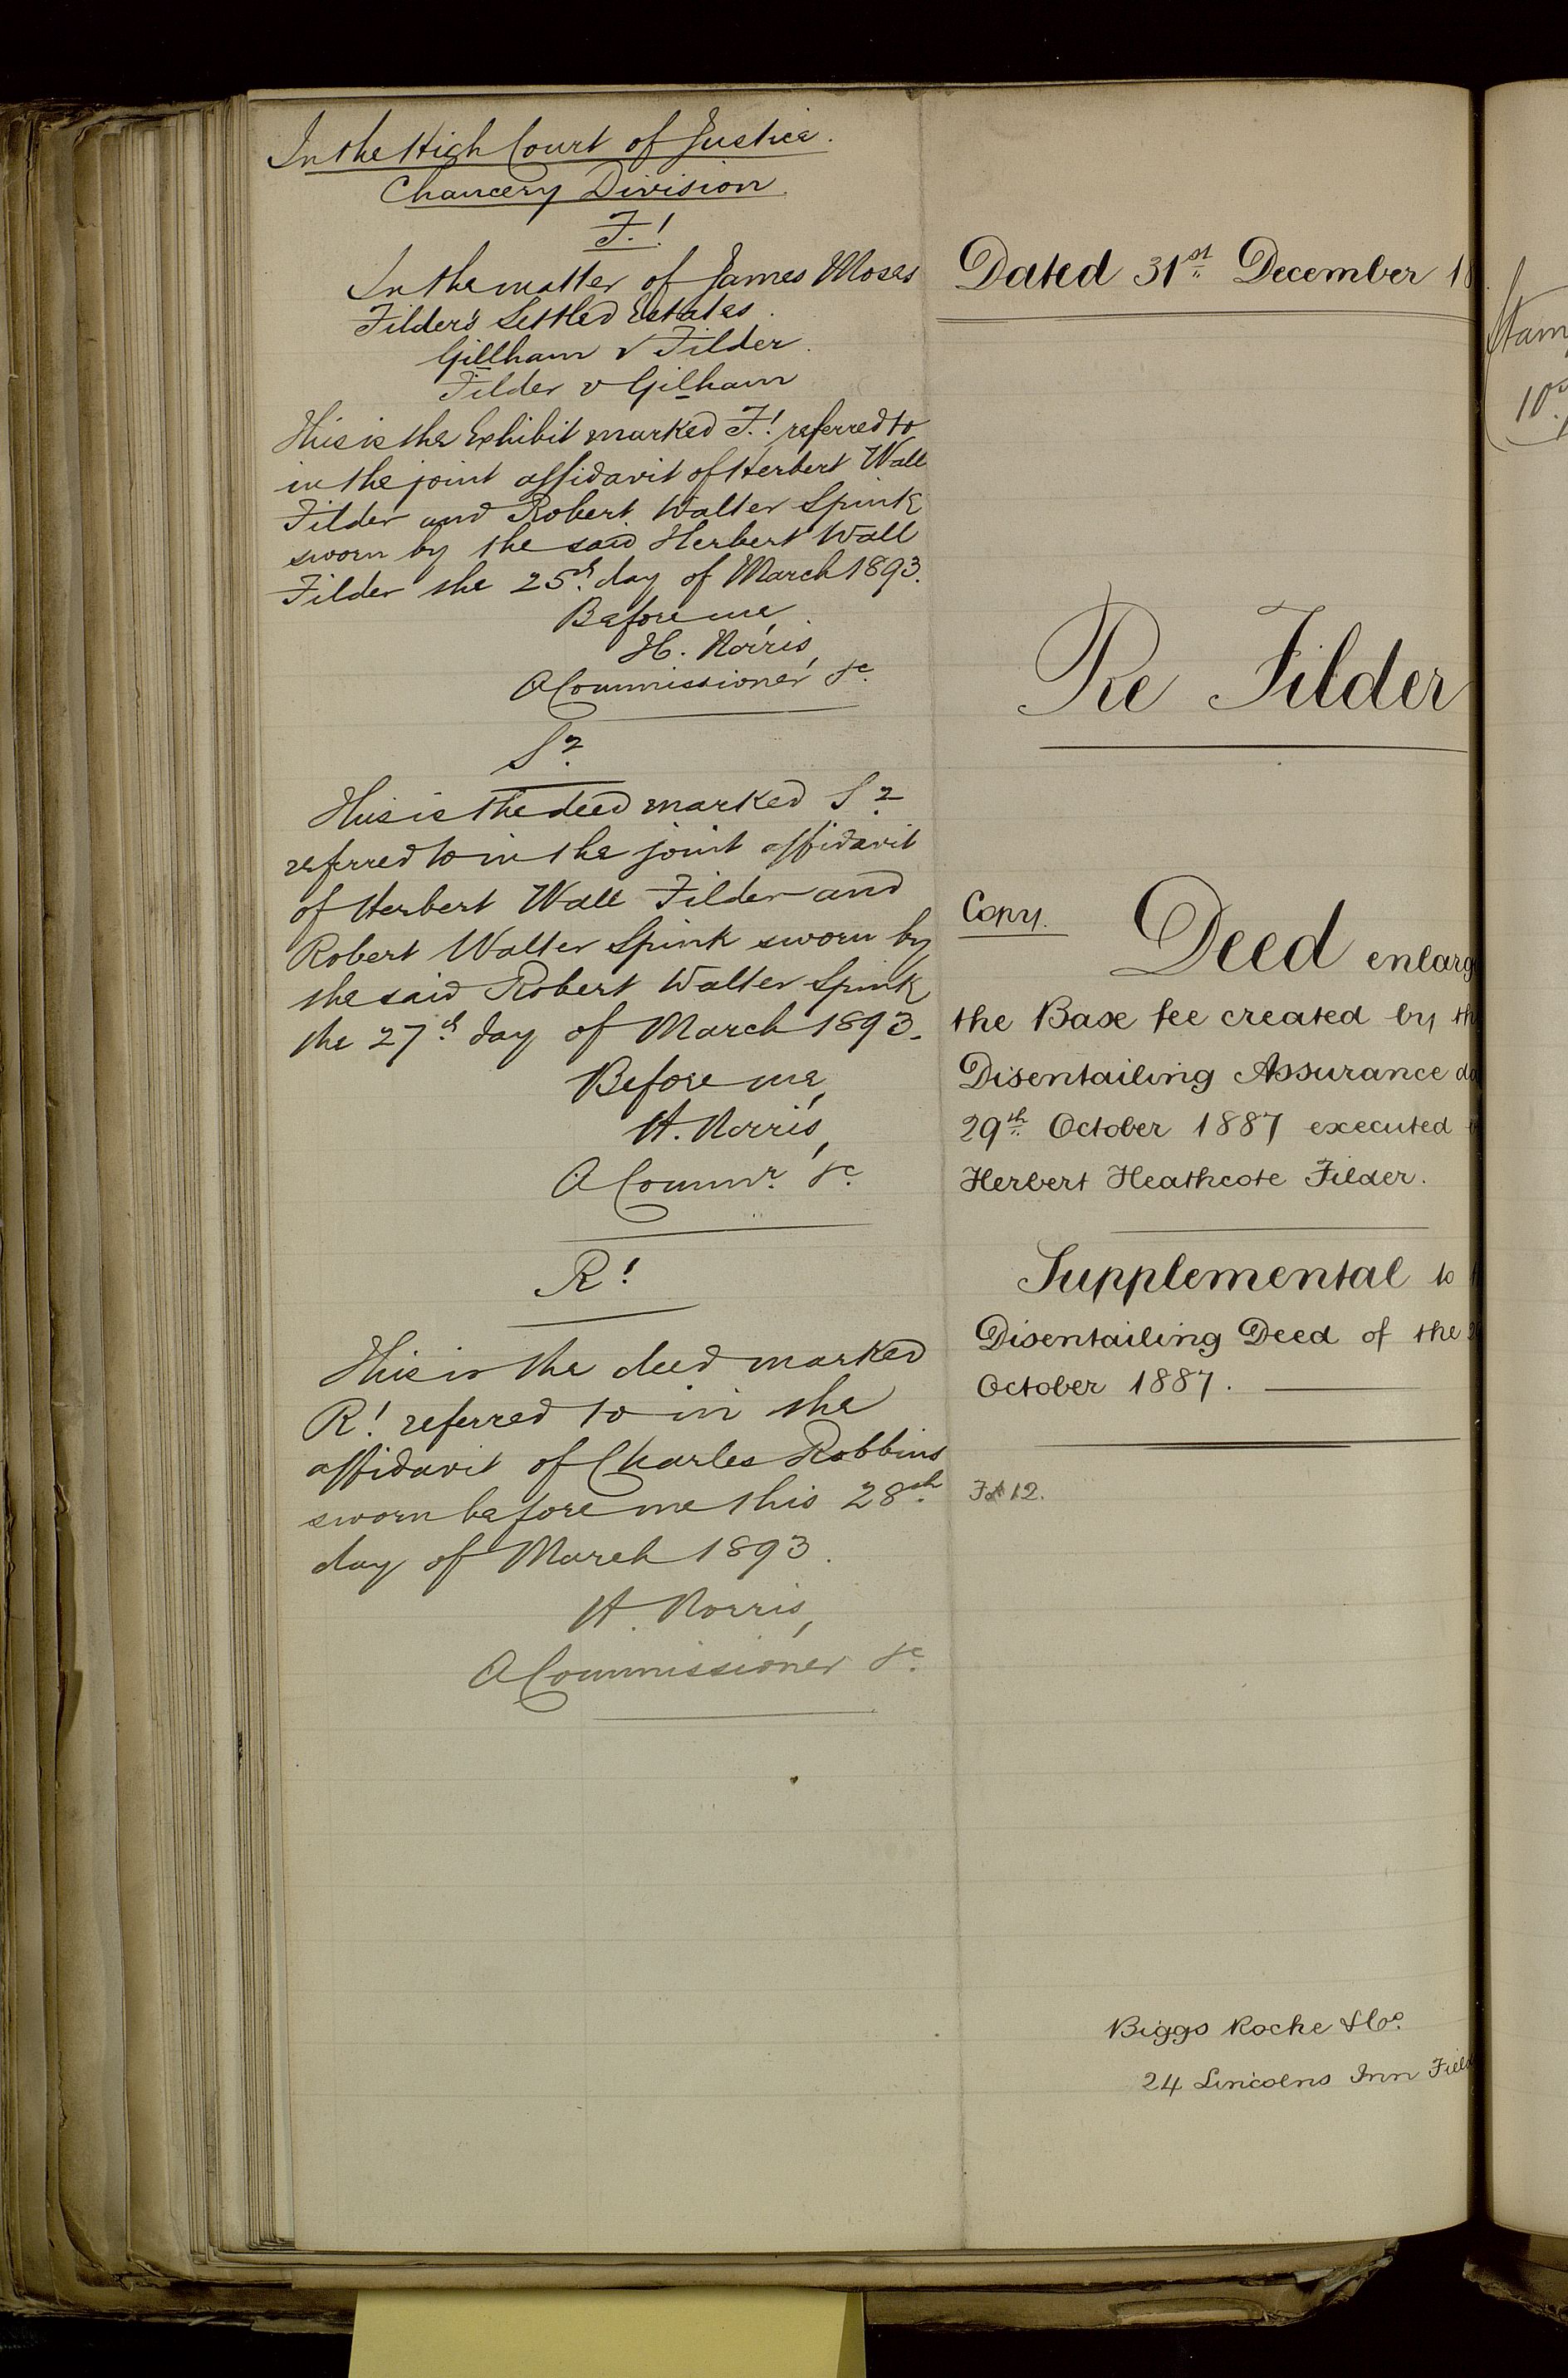 In the High Court of Justice.
Chancery Division.
F.1
In the matter of James Moses
Filder's Settled Estates.
Gillham v Filder.
Filder v Gilham
This is the Exhibit marked F.1 referred to
in the joint affidavit of Herbert Wall
Filder and Robert Walter Spink
sworn by the said Herbert Wall
Filder the 25th day of March 1893.
Before me,
H. Norris,
A Commissioner &c.
S.2
This is the deed marked S.2
referred to in the joint affidavit
of Herbert Wall Filder and
Robert Walter Spink sworn by
the said Robert Walter Spink
the 27th day of March 1893.
Before me,
H. Norris,
A Commr. &c.
R.1
This is the deed marked
R.1 referred to in the
affidavit of Charles Robbins
sworn before me this 28th
day of March 1893.
H. Norris,
A Commissioner &c.
Dated 31st December 18
Re Filder
Copy.
Deed enlarg
the Base fee created by th
Disentailing Assurance da
29th October 1887 executed
Herbert Heathcote Filder.
Supplemental to
Disentailing Deed of the 2
October 1887.
12.
Biggs Roche & Co.
24 Lincolns Inn Field
Stam
10s